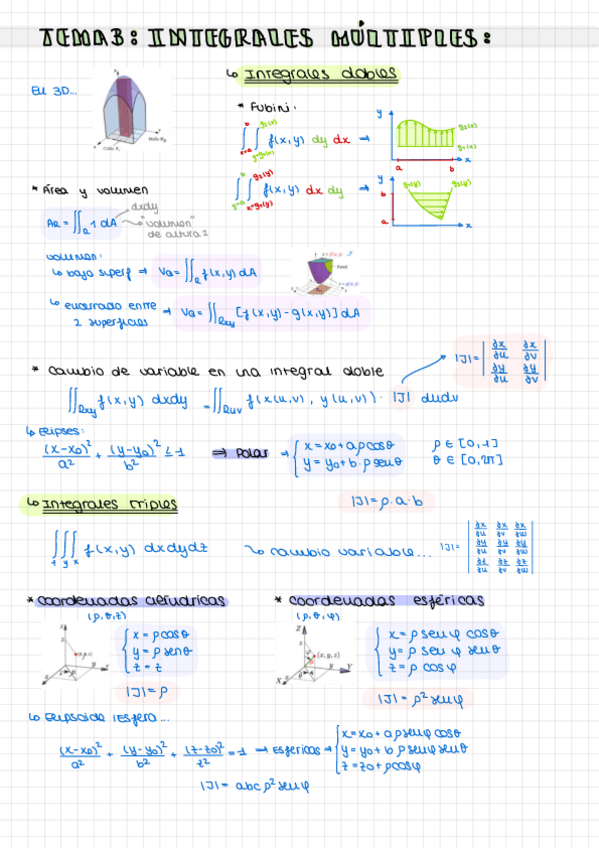 TEMA3: INTEGRALES MÚLTIPLES:
↳ Integrales dobles
En 3D...
* Fubini:
∫_{x=a}^{b} ∫_{y=g1(x)}^{g2(x)} f(x,y) dy dx →
y g2(x) g1(x) a b x
∫_{y=a}^{b} ∫_{x=g1(y)}^{g2(y)} f(x,y) dx dy →
y g1(y) g2(y) b a x
* Área y volumen
dxdy
AR = ∬_R 1 dA → "volumen" de altura 1
volumen:
↳ bajo superf → VQ = ∬_R f(x,y) dA
↳ encerrado entre 2 superficies → VQ = ∬_{Rxy} [f(x,y) - g(x,y)] dA
* Cambio de variable en una integral doble
|J| = | ∂x/∂u ∂x/∂v |
| ∂y/∂u ∂y/∂v |
∬_{Rxy} f(x,y) dxdy = ∬_{Ruv} f(x(u,v), y(u,v)) · |J| dudv
↳ Elipses:
(x-x0)²/a² + (y-y0)²/b² ≤ 1 ⇒ Polar → { x = x0 + aρcosθ ρ ∈ [0,1]
y = y0 + b·ρ senθ θ ∈ [0,2π]
|J| = ρ·a·b
↳ Integrales triples
∭_{z y x} f(x,y) dxdydz ↳ cambio variable... |J| = | ∂x/∂u ∂x/∂v ∂x/∂w |
| ∂y/∂u ∂y/∂v ∂y/∂w |
| ∂z/∂u ∂z/∂v ∂z/∂w |
* coordenadas cilíndricas
(ρ,θ,z)
{ x = ρcosθ
y = ρ senθ
z = z
|J| = ρ
* coordenadas esféricas
(ρ,θ,φ)
{ x = ρ senφ cosθ
y = ρ senφ senθ
z = ρ cosφ
|J| = ρ² senφ
↳ Elipsoide/Esfera...
(x-x0)²/a² + (y-y0)²/b² + (z-z0)²/z² = 1 → Esféricas → { x = x0 + aρ senφ cosθ
y = y0 + b ρ senφ senθ
z = z0 + ρcosφ
|J| = abc ρ² senφ